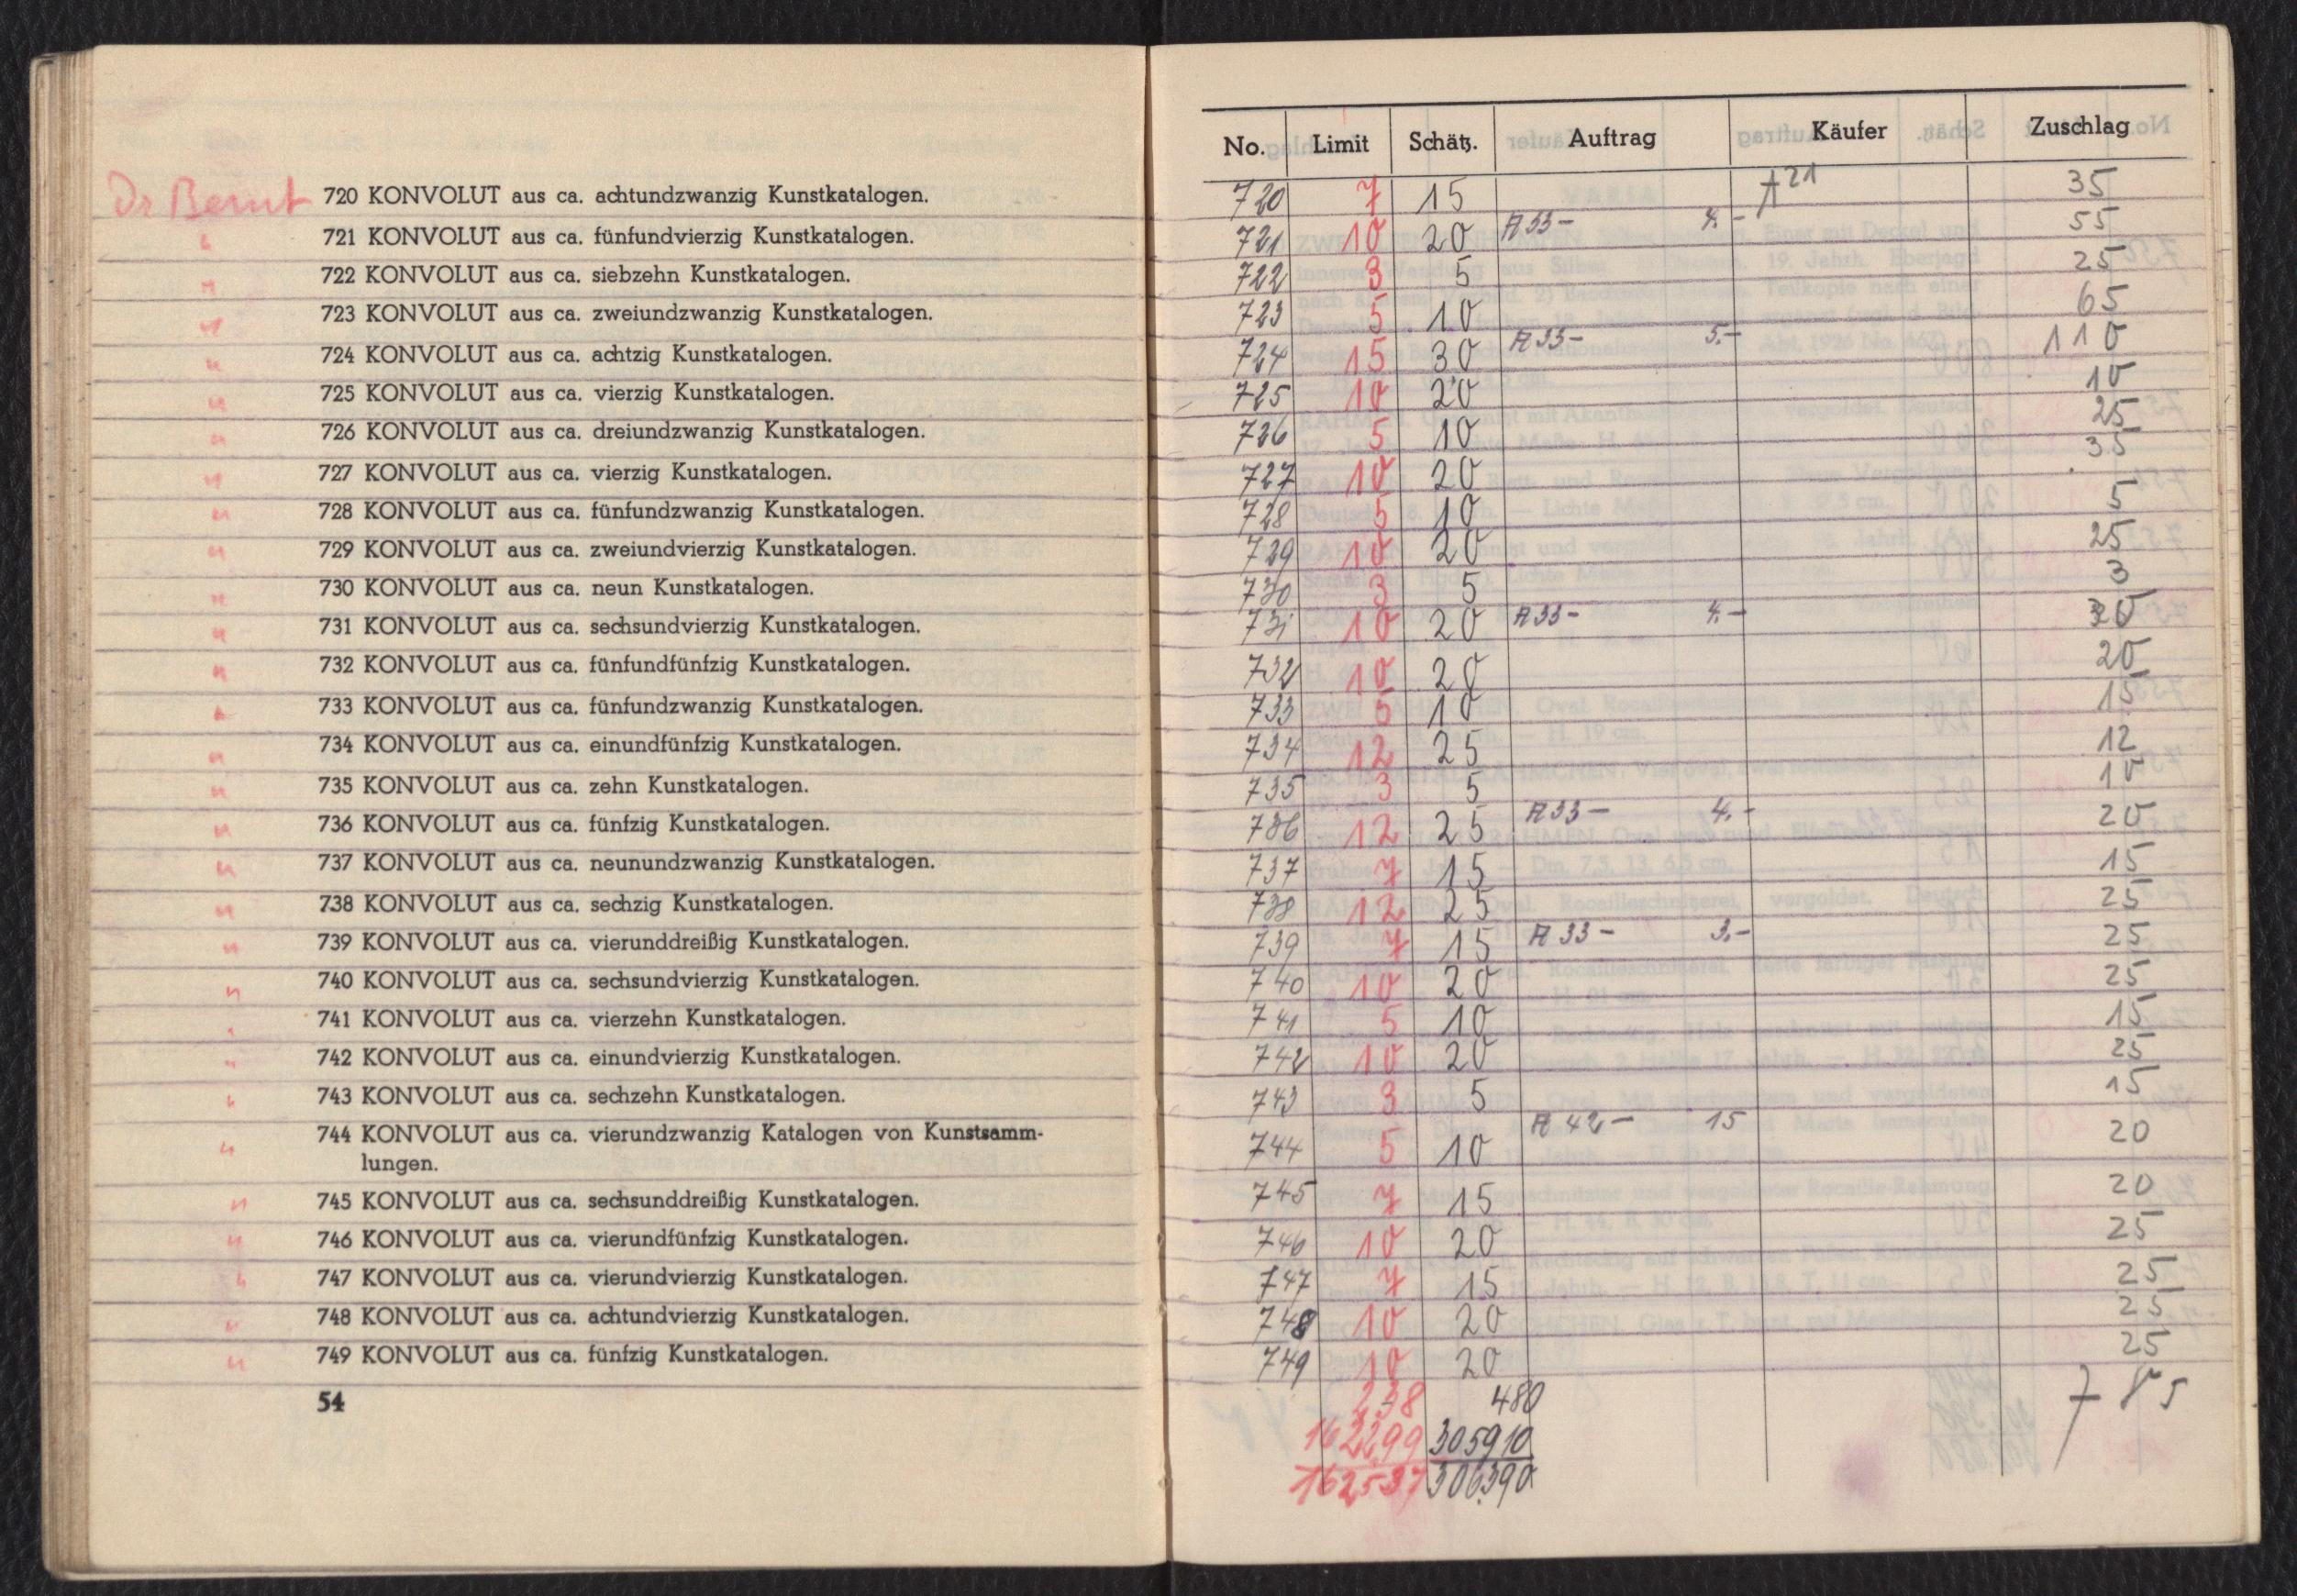 Dr Bernt 720 KONVOLUT aus ca. achtundzwanzig Kunstkatalogen.
" 721 KONVOLUT aus ca. fünfundvierzig Kunstkatalogen.
" 722 KONVOLUT aus ca. siebzehn Kunstkatalogen.
" 723 KONVOLUT aus ca. zweiundzwanzig Kunstkatalogen.
" 724 KONVOLUT aus ca. achtzig Kunstkatalogen.
" 725 KONVOLUT aus ca. vierzig Kunstkatalogen.
" 726 KONVOLUT aus ca. dreiundzwanzig Kunstkatalogen.
" 727 KONVOLUT aus ca. vierzig Kunstkatalogen.
" 728 KONVOLUT aus ca. fünfundzwanzig Kunstkatalogen.
" 729 KONVOLUT aus ca. zweiundvierzig Kunstkatalogen.
" 730 KONVOLUT aus ca. neun Kunstkatalogen.
" 731 KONVOLUT aus ca. sechsundvierzig Kunstkatalogen.
" 732 KONVOLUT aus ca. fünfundfünfzig Kunstkatalogen.
" 733 KONVOLUT aus ca. fünfundzwanzig Kunstkatalogen.
" 734 KONVOLUT aus ca. einundfünfzig Kunstkatalogen.
" 735 KONVOLUT aus ca. zehn Kunstkatalogen.
" 736 KONVOLUT aus ca. fünfzig Kunstkatalogen.
" 737 KONVOLUT aus ca. neunundzwanzig Kunstkatalogen.
" 738 KONVOLUT aus ca. sechzig Kunstkatalogen.
" 739 KONVOLUT aus ca. vierunddreißig Kunstkatalogen.
" 740 KONVOLUT aus ca. sechsundvierzig Kunstkatalogen.
" 741 KONVOLUT aus ca. vierzehn Kunstkatalogen.
" 742 KONVOLUT aus ca. einundvierzig Kunstkatalogen.
" 743 KONVOLUT aus ca. sechzehn Kunstkatalogen.
" 744 KONVOLUT aus ca. vierundzwanzig Katalogen von Kunstsamm-
lungen.
" 745 KONVOLUT aus ca. sechsunddreißig Kunstkatalogen.
" 746 KONVOLUT aus ca. vierundfünfzig Kunstkatalogen.
" 747 KONVOLUT aus ca. vierundvierzig Kunstkatalogen.
" 748 KONVOLUT aus ca. achtundvierzig Kunstkatalogen.
" 749 KONVOLUT aus ca. fünfzig Kunstkatalogen.
54
No. Limit Schätz. Auftrag Käufer Zuschlag
720 7 15 A21 35
721 10 20 A33- 4.- 55
722 3 5 25
723 5 10 65
724 15 30 A33- 5.- 110
725 10 20 10
726 5 10 25
727 10 20 35
728 5 10 5
729 10 20 25
730 3 5 3
731 10 20 A33- 4.- 30
732 10 20 20
733 5 10 15
734 12 25 12
735 3 5 10
736 12 25 A33- 4.- 20
737 7 15 15
738 12 25 25
739 7 15 A33- 3.- 25
740 10 20 25
741 5 10 15
742 10 20 25
743 3 5 15
744 5 10 A42- 15 20
745 7 15 20
746 10 20 25
747 7 15 25
748 10 20 25
749 10 20 25
238 480 785
162299 305910
162537 306390